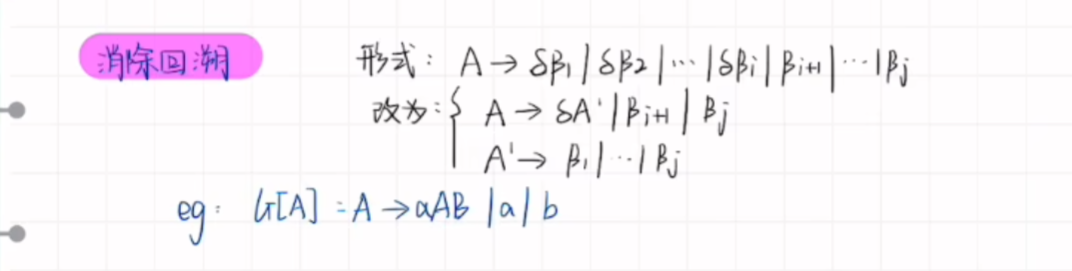 消除回溯 形式: A → δβ₁ | δβ₂ | ⋯ | δβi | βi+1 | ⋯ | βj
改为: { A → δA' | βi+1 | βj
A' → β₁ | ⋯ | βj
eg: G[A] : A → aAB | a | b